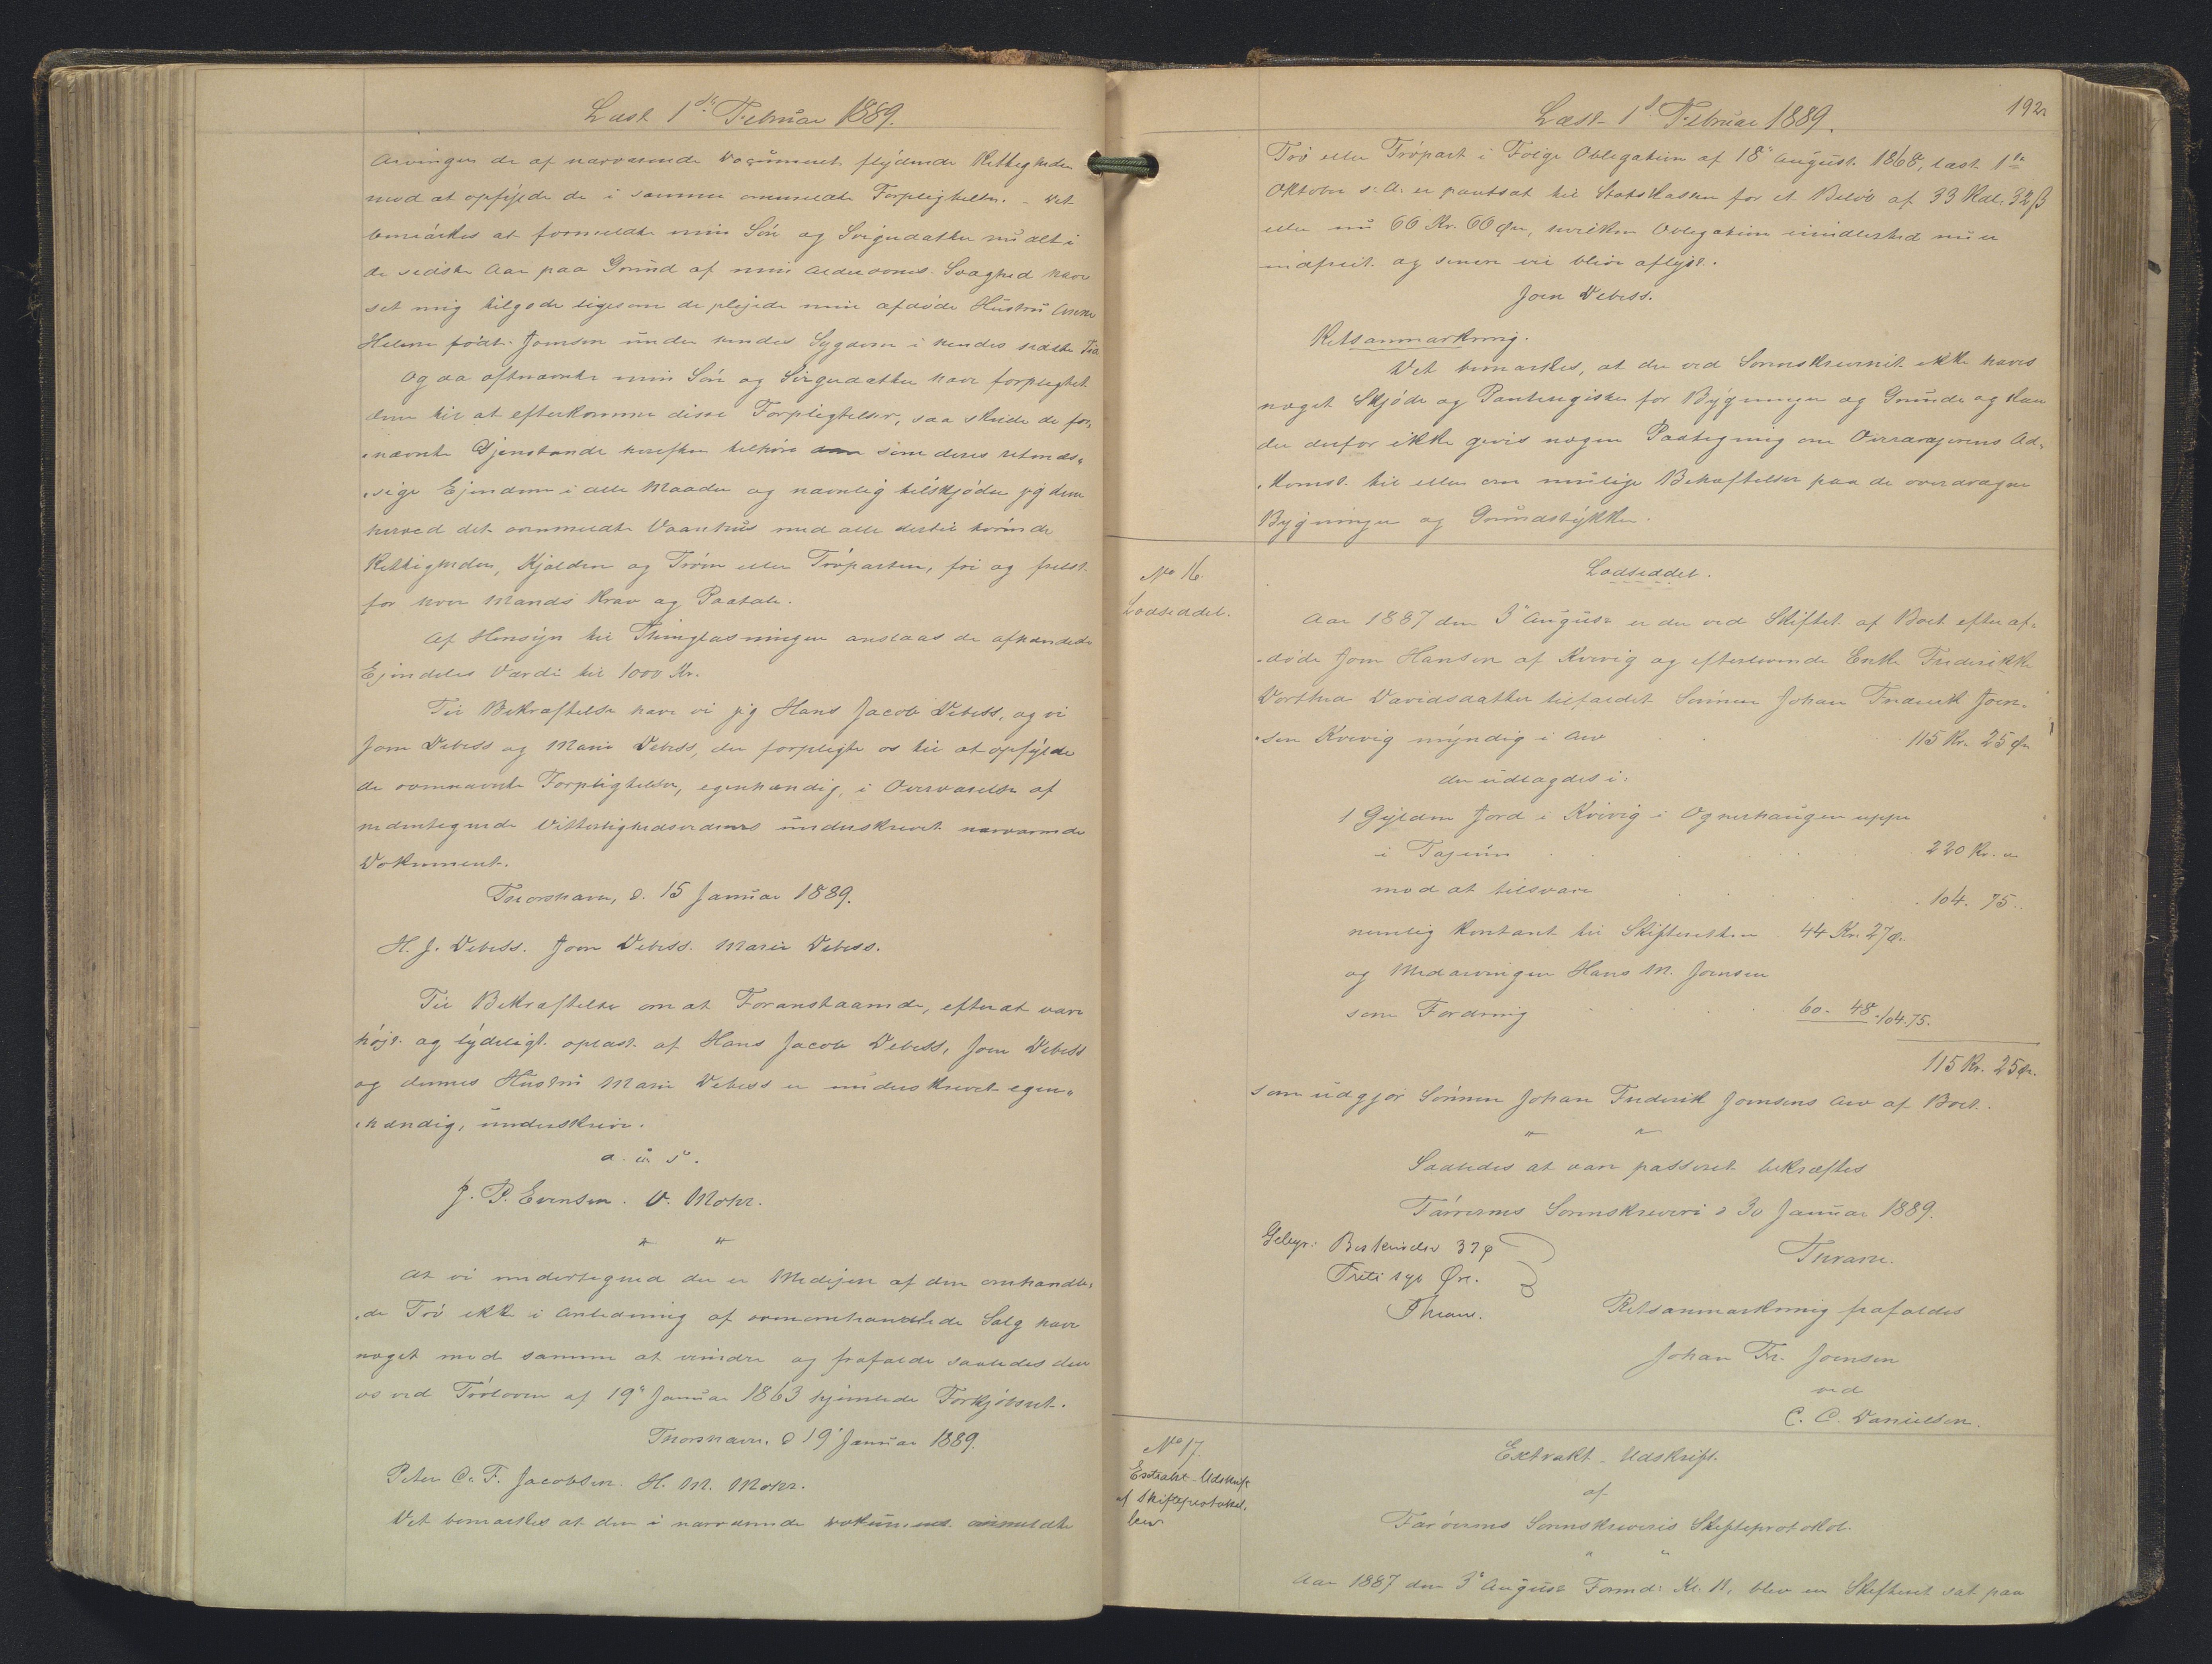 Læst 1ste Februar 1889.
Arvinger de af nærværende Document flydende Rettigheder
mod at opfylde de i samme ommeldte Forpligtelser. - Det
bemærkes at formeldte min Søn og Svigerdatter nu alt i
de sidste Aar paa Grund af min Alderdoms Svaghed have
set mig tilgode ligesom de plejede min afdøde Hustru Anna
Helene født Joensen under hendes Sygdom i hendes sidste Tid
Og da oftnævnte min Søn og Svigerdatter have forpligtet
dem til at efterkomme disse Forpligtelser, saa skulde de for-
nævnte Gjenstande herefter tilhøre dem som deres retmæs-
sige Ejendom i alle Maader og navnlig tilskjøder jeg dem
herved det ommeldte Vaanhus med alle dertil hørende
Rettigheder, Kjælder og Tróen eller Tróparten, fri og frelst
for hver Mands Krav og Paatale.
Af Hensyn til Thinglæsningen anslaas de afhændede
Ejendeles Værdi til 1000 Kr.
Til Bekræftelse have vi jeg Hans Jacob Debess, og vi
Joen Debess og Maria Debess, der forpligte os til at opfylde
de ovennævnte Forpligtelser, egenhændig, i Overværelse af
medentegnede Vitterlighedsvidner underskrevet nærværende
Dokument.
Thorshavn, d. 15 Januar 1889.
H. J. Debess. Joen Debess. Maria Debess.
Til Bekræftelse om at Foranstaaende, efterat være
højt og lydeligt oplæst af Hans Jacob Debess, Joen Debess
og dennes Hustru Maria Debess er underskrevet egen-
hændig, underskrive.
a. u. s.
J. P. Evensen. O. Mohr.
" "
At vi undertegned der er Medejere af den omhandle-
de Tró ikke i Anledning af ovenomhandlede Salg have
noget mod samme at erindre og frafalde saaledes den
os ved Tróloven af 19de Januar 1863 hjemlede Forkjøbsret.
Thorshavn, d 19 Januar 1889.
Peter C. F. Jacobsen. H. M. Mohr.
Det bemærkes at den i nærværende Dokument ommeldte
Læst 1ste Februar 1889.
192
Tró eller Trópart i Følge Obligation af 18de August 1868, læst 1ste
Oktober s. A. er pantsat til Statskassen for et Beløb af 33 Rdl. 32 ß
eller nu 66 Kr. 66 Øre, hvilken Obligation imidlertid nu er
indfriet og senere vil blive aflyst.
Joen Debess.
Retsanmærkning.
Det bemærkes, at der ved Sorenskriveriet ikke haves
noget Skjøde og Panteregister for Bygninger og Grunde og kan
der derfor ikke gives nogen Paategning om Overdragerens Ad-
komst til eller om mulige Behæftelser paa de overdragne
Bygninger og Grundstykker.
No 16.
Lodseddel.
Lodseddel.
Aar 1887 den 3de August er der ved Skiftet af Boet efter af-
døde Joen Hansen af Kvivig og efterlevende Enke Frederikke
Dorthea Davidsdatter tilfaldet Sønnen Johan Frederik Joen-
sen Kvivig myndig i Arv . . . 115 Kr. 25 Øre
der udlagdes i:
1 Gylden Jord i Kvivig i Ognerhaugen uppe
i Tajeún . . . 220 Kr. "
mod at tilsvare . . . 104. 75.
nemlig kontant til Skifteretten . 44 Kr. 27 Ø.
og Medarvingen Hans M. Joensen
som Fordring . . . 60. 48. 104.75.
115 Kr. 25 Ø.
som udgjør Sønnen Johan Frederik Joensens Arv af Boet.
" "
Saaledes at være passeret bekræftes
Færøernes Sorenskriveri d 30 Januar 1889.
Gebyr: Beskrivelse 37 Ø
Treti syv Øre.
Thrane.
Thrane.
Retsanmærkning frafaldes
Johan Fr. Joensen
ved
C. C. Danielsen.
No 17.
Extrakt-Udskrift
af Skifteprotokol-
len
Extrakt-Udskrift
af
Færøernes Sorenskriveris Skifteprotokol.
" "
Aar 1887 den 3de August Formd: Kl. 11, blev en Skifteret sat paa